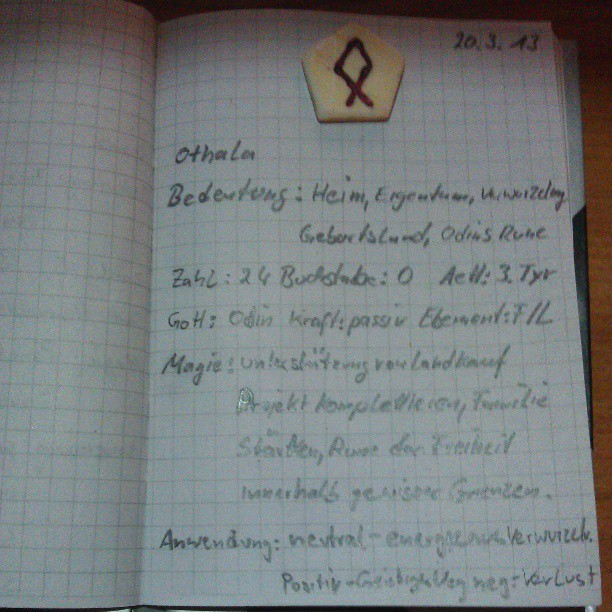 20.3.13
Othala
Bedeutung: Heim, Eigentum, Verwurzelung
Geburtsland, Odins Rune
Zahl: 24 Buchstabe: O Aett: 3. Tyr
Gott: Odin Kraft: passiv Element: F/L
Magie: Unterstützung von Landkauf
Projekt komplettieren, Familie
Stärken, Rune der Freiheit
innerhalb gewisser Grenzen.
Anwendung: neutral -
Positiv - neg: Verlust